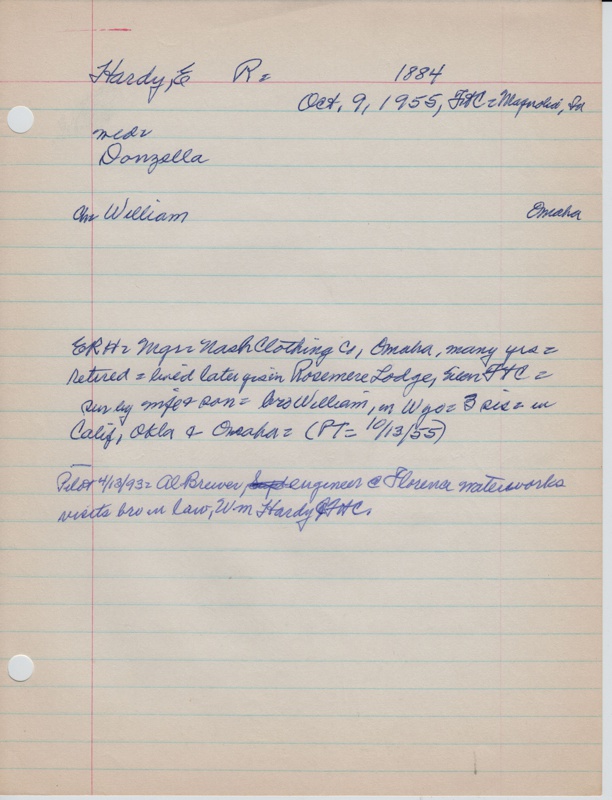 Hardy, E R= 1884
Oct, 9, 1955, FtC = Magnolia, Ia
med=
Donzella
Ch= William Omaha
ERH= Mgr= Nash Clothing Co, Omaha, many yrs=
Retired = lived later yrs in Rosemere Lodge, FtC =
Sur by wife & son= bro William, in Wyo= 3 sis= in
Calif, Okla & Omaha= (PT= 10/13/55)
Pilot 4/13/93= Al Brewer, engineer @ Florence waterworks
visits bro in law, Wm Hardy @ FtC.